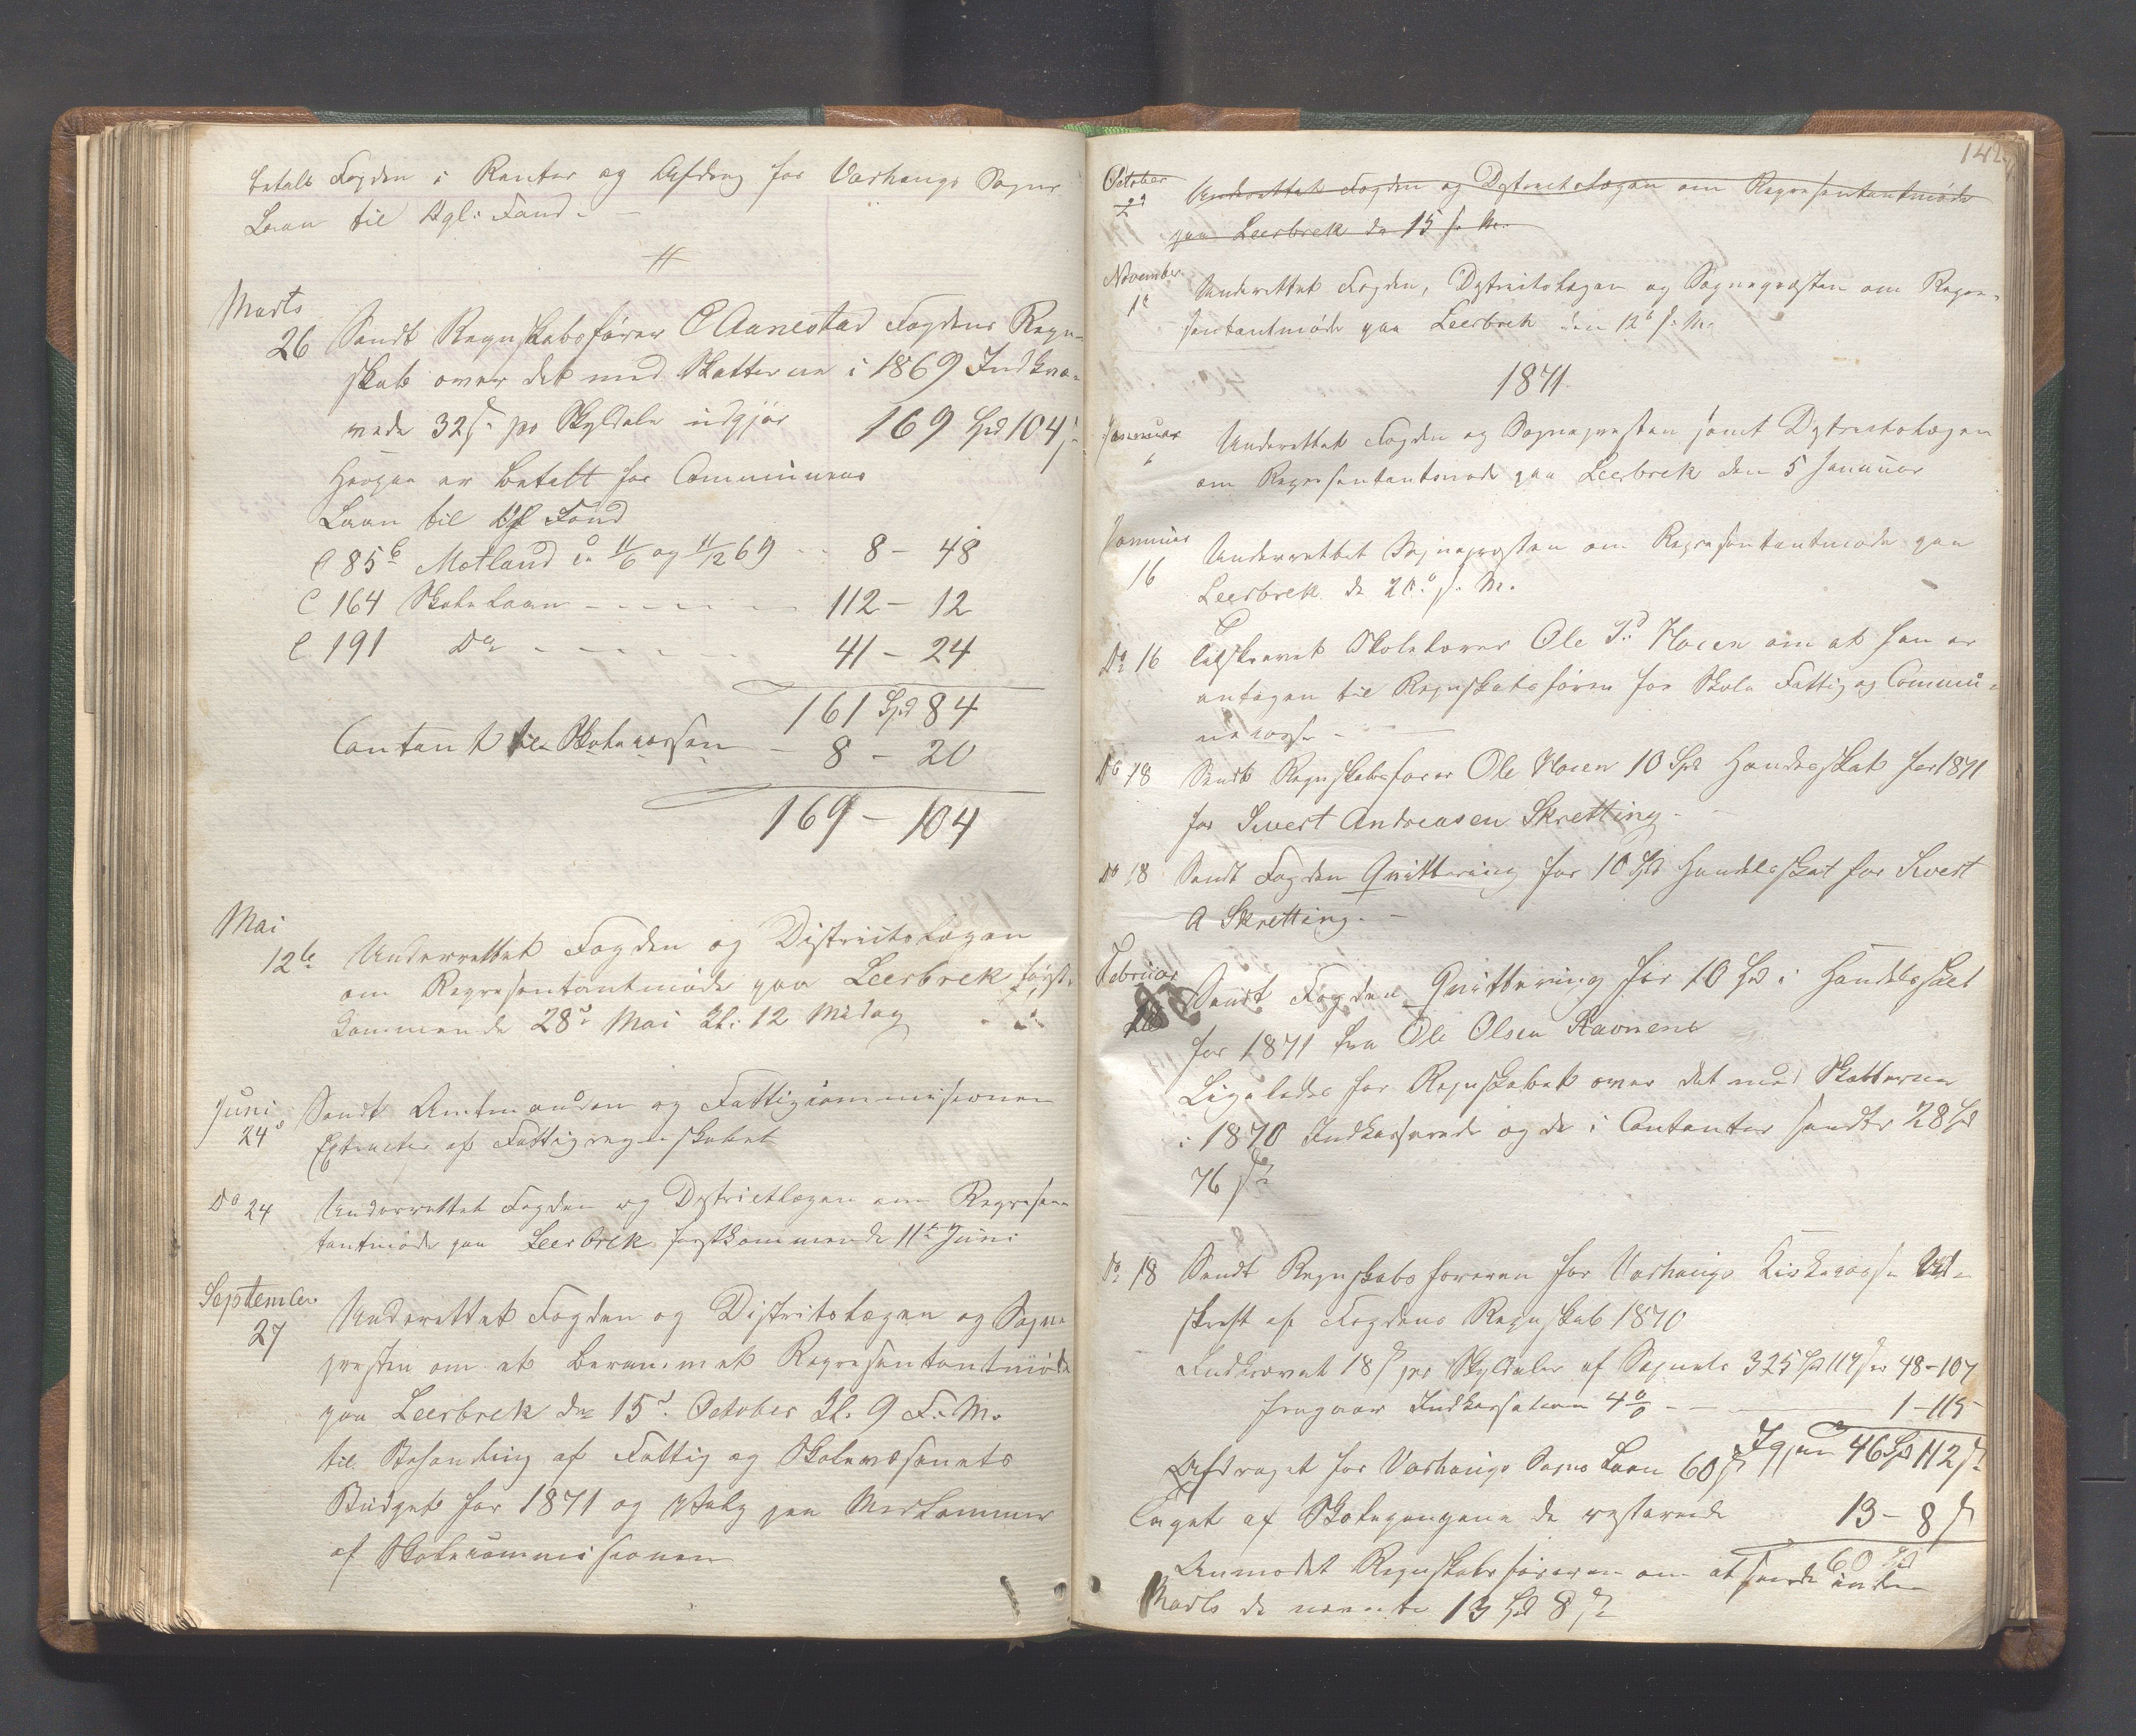 betalt Fogden i Renter og Afdrag for Varhougs Sogns
Laan til Opl: Fond. –
Marts
26 Sendt Regnskabsfører C Aanestad Fogdens Regn-
skab over det med Skatterne i 1869 Indkræ-
vede 32 s pr Skyldaler udgjør 169 Spd 104 s
Herpaa er betalt for Communens
Laan til Opl Fond
C 85 b Motland 11/6 og 11/12 69 8 – 48
C 164 Skolelaan – – – – 112 – 12
C 191 Do – – – – 41 – 24
161 Spd 84
Contant til Skolecassen – 8 – 20
169 – 104
Mai
12te Underrettet Fogden og Districtslægen
om Repræsentantmøde paa Leerbrek først-
kommende 28de Mai Kl: 12 Middag
Juni
24de Sendt Amtmanden og Fattigcommisionen
Extracter af Fattigregnskabet
Do 24 Underrettet Fogden og Dystrictlægen om Repræsen
tantmøde paa Leerbrek førstkommende 11te Juni
September
27 Underrettet Fogden og Distritslægen og Sogne
presten om et berammet Repræsentantmøde
paa Leerbrek den 15de October Kl. 9 F. M.
til Behandling af Fattig og Skolevæsenets
Budget for 1871 og Valg paa Medlemmer
af Skolecommisionen
142
October
29 Underettet Fogden og Dystrictslægen om Repræsentantmøde
paa Leerbrek de 15 f. M.
November
1te Underettet Fogden, Dystrictslægen og Sognepræsten om Repræ-
sentantmøde paa Leerbrek den 12te f. M.
1871
Januar
Underettet Fogden og Sognepresten samt Dystrictslægen
om Repræsentantmøde paa Leerbrek den 5 Januar
Januar
16 Underrettet Sognepresten om Repræsentantmøde paa
Leerbrek d. 20de f. M.
Do 16 Tilskrevet Skolelærer Ole Haaen om at han er
antagen til Regnskabsfører for Skole Fattig og Commu-
necasse –
Do 18 Sendt Regnskabsfører Ole Haaen 10 Spd Handelsskat for 1871
for Sivert Andreasen Skretting –
Do 18 Sendt Fogden Qvittering for 10 Spd Handelsskat for Sivert
A Skretting. –
Februar
Sendt Fogden Qvittering for 10 Spd i Handelsskat
for 1871 fra Ole Olsen Ravnene
Ligeledes for Regnskabet over det med Skatterne
i 1870 Indkasserede og de i Contanter sendte 28 Spd
76 s
Do 18 Sendt Regnskabsføreren for Varhougs Kirkecasse Ud-
skrift af Fogdens Regnskab 1870
Indkrevet 18 s pr Skyldaler af Sognets 325 Spd 114 s er 48 – 107
fragaar Indkassation 4 % – – 1 – 115
Igjen 46 Spd 112 s
Afdraget for Varhougs Sogns Laan 60 Spd
taget af Skolepengene de resterende 13 – 8 s
60 Spd
Anmodet Regnskabsføreren om at sende inden
Marts de nævnte 13 Spd 8 s